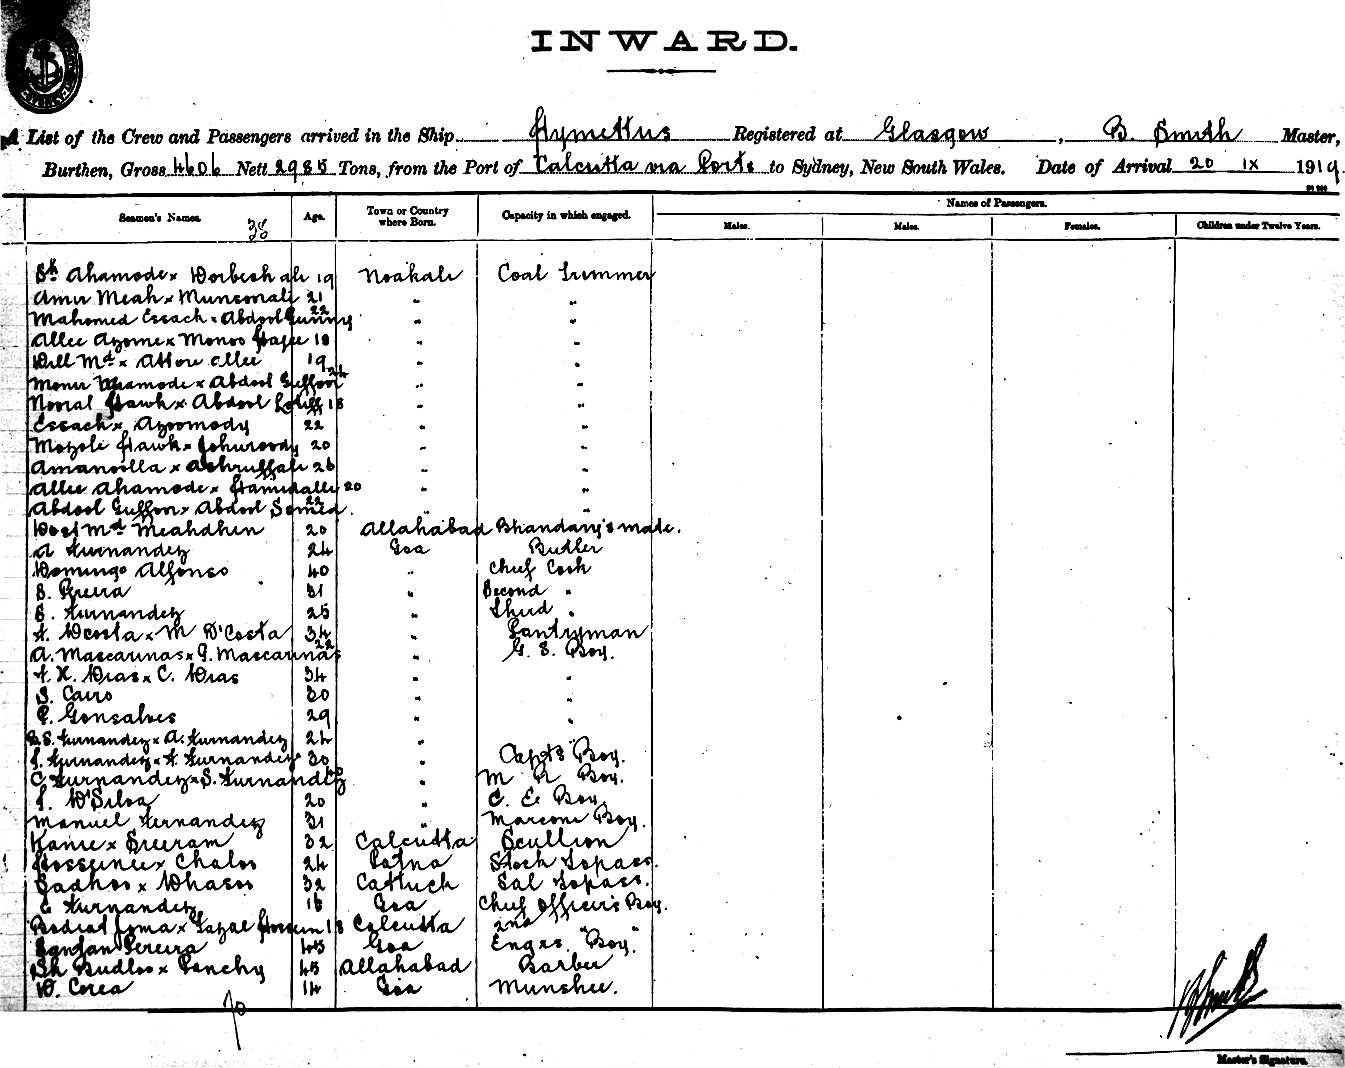 INWARD.
A List of the Crew and Passengers arrived in the Ship Hymettus Registered at Glasgow, B. Smith Master,
Burthen, Gross 4606 Nett 2985 Tons, from the Port of Calcutta via Ports to Sydney, New South Wales. Date of Arrival 20 IX 1919
Seamen's Names. Age. Town or Country where Born. Capacity in which engaged. Names of Passengers.
Males. Males. Females. Children under Twelve Years.
38
Sk Ahamode x Dorbesh ali 19 Noakali Coal Trimmer
Amir Meah x Munsorali 21 " "
Mahomed Essach x Abdool Gunny 22 " "
Allee Azome x Monoo 18 " "
Dill Md x Allee 19 " "
Monir Ahamode x Abdool Guffoor 24 " "
Nooral Hawk x Abdool Lotiff 18 " "
Essach x Azoomody 22 " "
Mozole Hawk x 20 " "
Amanoolla x Achruffali 26 " "
Allee Ahamode x Hamidalli 20 " "
Abdool Guffoor x Abdool Somed. 22 " "
Dost Md Meahdhin 20 Allahabad Bhandary's mate.
A Furnandez 24 Goa Butler
Domingo Alfonso 40 " Chief Cook
S. Pereira 31 " Second "
B. Furnandez 25 " Third "
A. Dcosta x M D'Costa 34 " Pantryman
A. Mascarinas x G. Mascarinas 22 " G. S. Boy.
A. X. Dias x C. Dias 34 " "
S. Cairo 30 " "
P. Gonsalves 29 " "
S. Furnandez x A. Furnandez 24 " "
J. Furnandez x A. Furnandez 30 " Capt's Boy.
C. Furnandez x S. Furnandez 40 " M R Boy.
J. D'Silva 20 " C. E. Boy.
Manuel Fernandez 31 " Marconi Boy.
Kanie x Sreeram 32 Calcutta Scullion
Hosseinee x Chaloo 24 Patna Stock Topass.
Sadhoo x Dhasoo 32 Cattuck Sal Topass.
C Furnandez 16 Goa Chief Officer's Boy.
Bodiat Joma x Fazal Hossein 18 Calcutta 2nd " "
Pereira 45 Goa Engrs. Boy.
Sh Budloo x Panchy 45 Allahabad Barber
D. Corea 14 Goa Munshee.
Master's Signature.